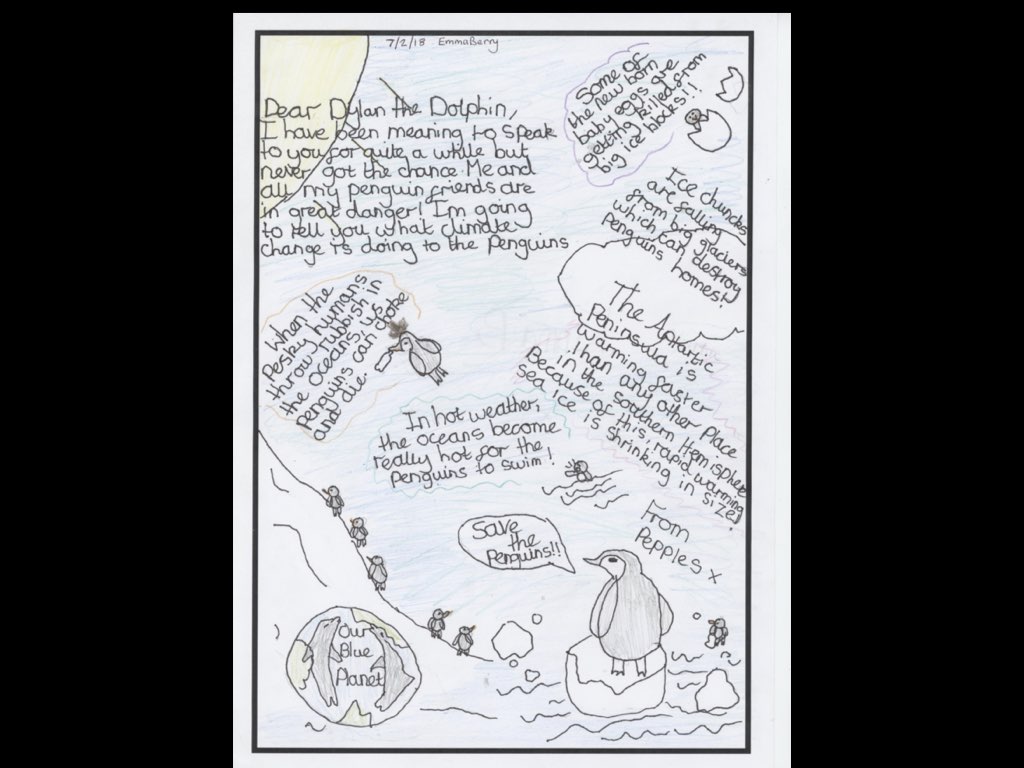 7/2/18 Emma Barry
Dear Dylan the Dolphin,
I have been meaning to speak
to you for quite a while but
never got the chance. Me and
all my penguin friends are
in great danger! I'm going
to tell you what climate
change is doing to the Penguins
Some of
the new born
baby eggs are
getting killed from
big ice blocks!!!
Ice chuncks
are falling
from big glaciers
which can destroy
Penguins homes!
When the
peskey humans
throw rubbish in
the oceans we
penguins can choke
and die.
The Antartic
Peninsula is
warming faster
Than any other Place
in the southern Hemisphere
Because of this, rapid warming
sea ice is shrinking in size!
In hot weather,
the oceans become
really hot for the
Penguins to swim!
From
Pepples x
Save
the
Penguins!!
Our
Blue
Planet